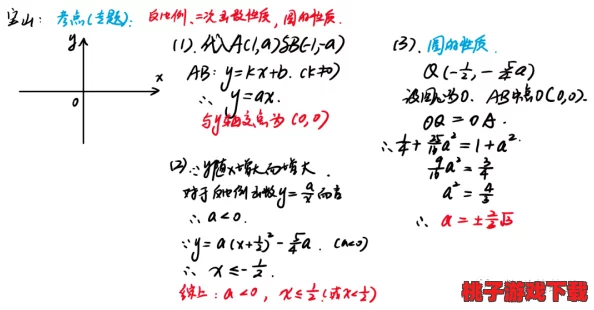 宝山: 考点(专题): 反比例、二次函数性质, 圆的性质.
y
x
0
(1). 代入A(1,a)与B(-1,-a)
AB: y=kx+b. (k≠0)
∴ y=ax.
与y轴交点为 (0,0)
(2) ∵ y随x增大而增大.
对于反比例函数y=a/x而言
∴ a<0.
∵ y=a(x+1/2)²-5/4a. (a<0)
∴ x≤-1/2.
综上: a<0, x≤1/2(或x<1/2)
(3). 圆的性质.
Q(-1/2, -5/4a)
设圆心为O. AB中点O(0,0).
OQ=OA.
∴ 1/4+25/16a²=1+a².
9/16a²=3/4
a²=4/3
∴ a=±2/3√3
桃子游戏下载